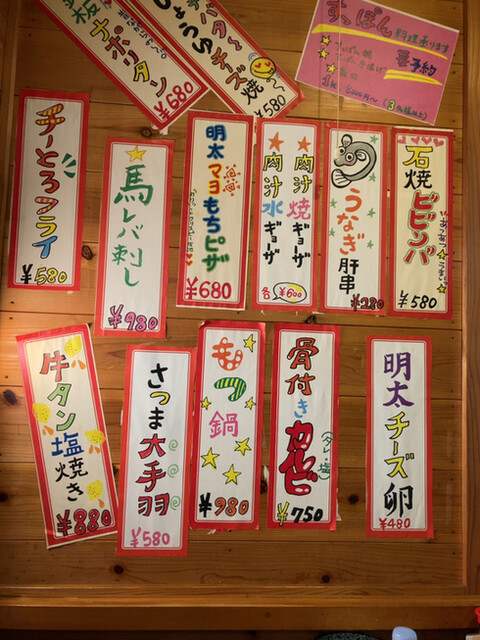 板ナポリタン
¥680
バター
しょうゆチーズ焼
¥580
すっぽん料理承ります
要予約
チーとろフライ
¥580
馬レバ刺し
¥980
明太マヨもちピザ
¥680
肉汁焼ギョーザ
肉汁水ギョーザ
各¥600
うなぎ肝串
¥280
石焼ビビンバ
あつあつうまい
¥580
牛タン塩焼き
¥880
さつま大手羽
¥580
もつ鍋
¥980
骨付きカルビ
(タレ・塩)
¥750
明太チーズ卵
¥480